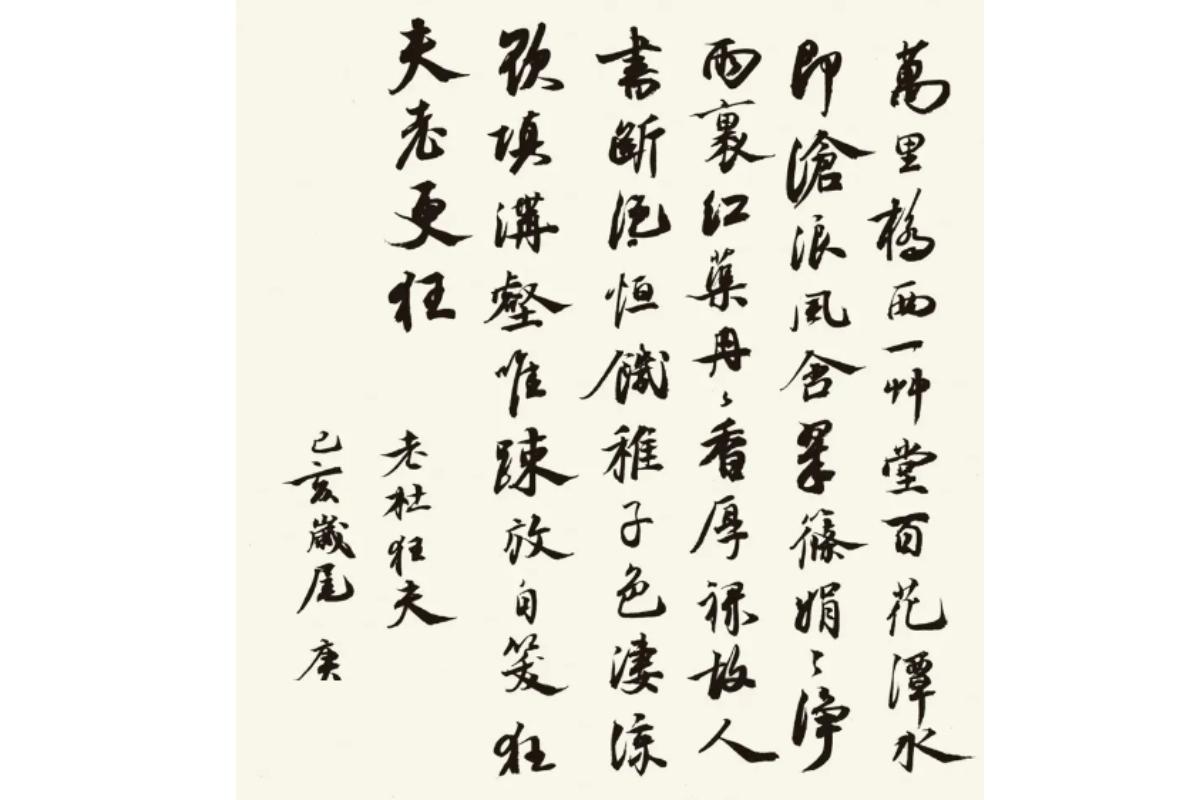 萬里橋西一艸堂百花潭水
即滄浪風含翠篠娟〻淨
雨裏紅蕖冉〻香厚祿故人
書斷絕恒饑稚子色淒涼
欲填溝壑唯踈放自笑狂
夫老更狂
老杜狂夫
己亥歲尾 庚